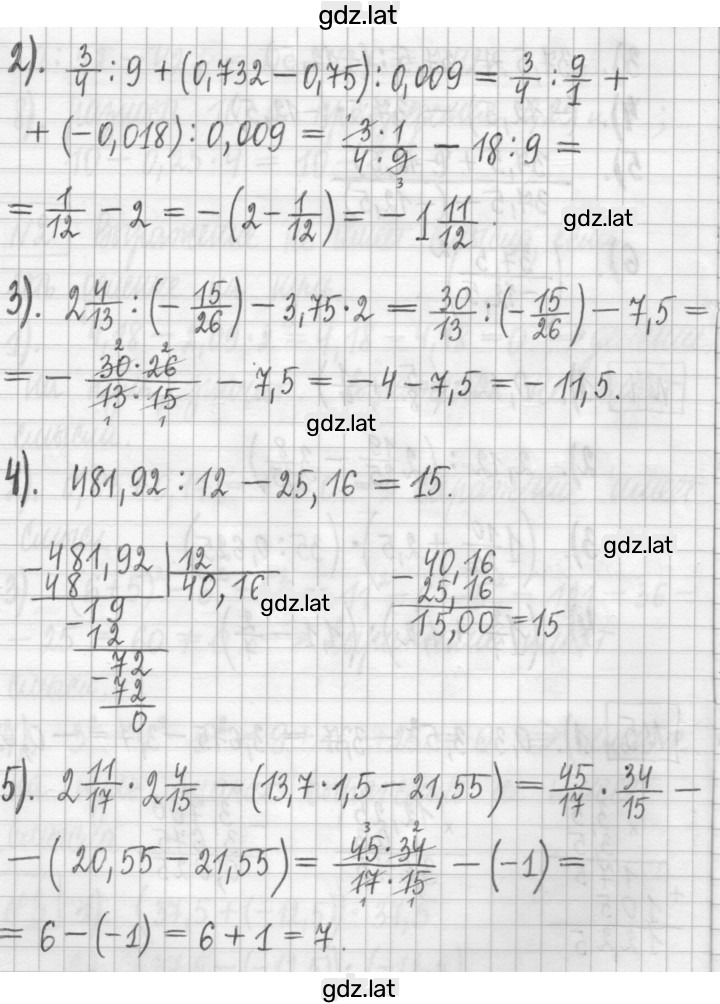 gdz.lat
2). 3/4 : 9 + (0,732 − 0,75) : 0,009 = 3/4 : 9/1 +
+ (−0,018) : 0,009 = 3·1/4·9 − 18 : 9 =
1 3
= 1/12 − 2 = −(2 − 1/12) = −1 11/12.
gdz.lat
3). 2 4/13 : (−15/26) − 3,75·2 = 30/13 : (−15/26) − 7,5 =
2 2
= − 30·26/13·15 − 7,5 = −4 − 7,5 = −11,5.
1 1
gdz.lat
4). 481,92 : 12 − 25,16 = 15.
gdz.lat
−481,92 | 12
48 | 40,16
gdz.lat
−19
12
−72
72
0
−40,16
25,16
15,00 = 15
5). 2 11/17 · 2 4/15 − (13,7·1,5 − 21,55) = 45/17 · 34/15 −
3 2
− (20,55 − 21,55) = 45·34/17·15 − (−1) =
1 1
= 6 − (−1) = 6 + 1 = 7.
gdz.lat